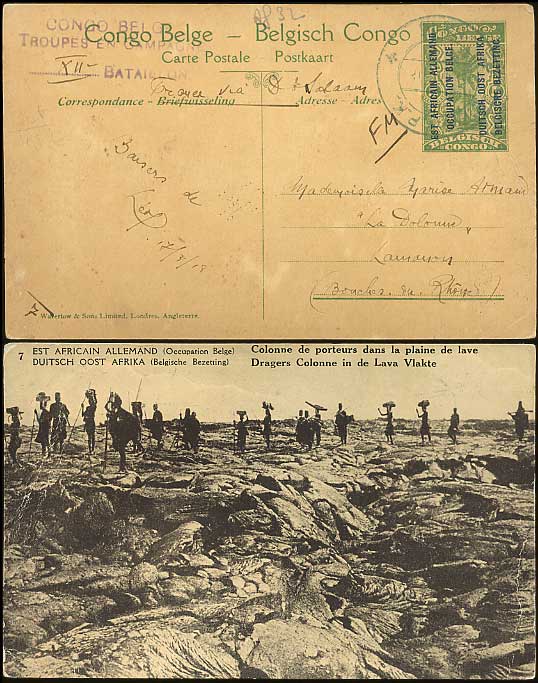 CONGO BELGE
TROUPES EN CAMPAGNE
XII BATAILLON
Congo Belge — Belgisch Congo
Carte Postale - Postkaart
France via D' Salaam
Correspondance - Briefwisseling
Adresse - Adres
EST AFRICAIN ALLEMAND
OCCUPATION BELGE
DUITSCH OOST AFRIKA
BELGISCHE BEZETTING
BELGISCH CONGO
FM
Baisers de
Léo
17/3/18
Mademoiselle
"La
(Bouches du Rhône)
7
Waterlow & Sons Limited, Londres, Angleterre.
7 EST AFRICAIN ALLEMAND (Occupation Belge) Colonne de porteurs dans la plaine de lave
DUITSCH OOST AFRIKA (Belgische Bezetting) Dragers Colonne in de Lava Vlakte